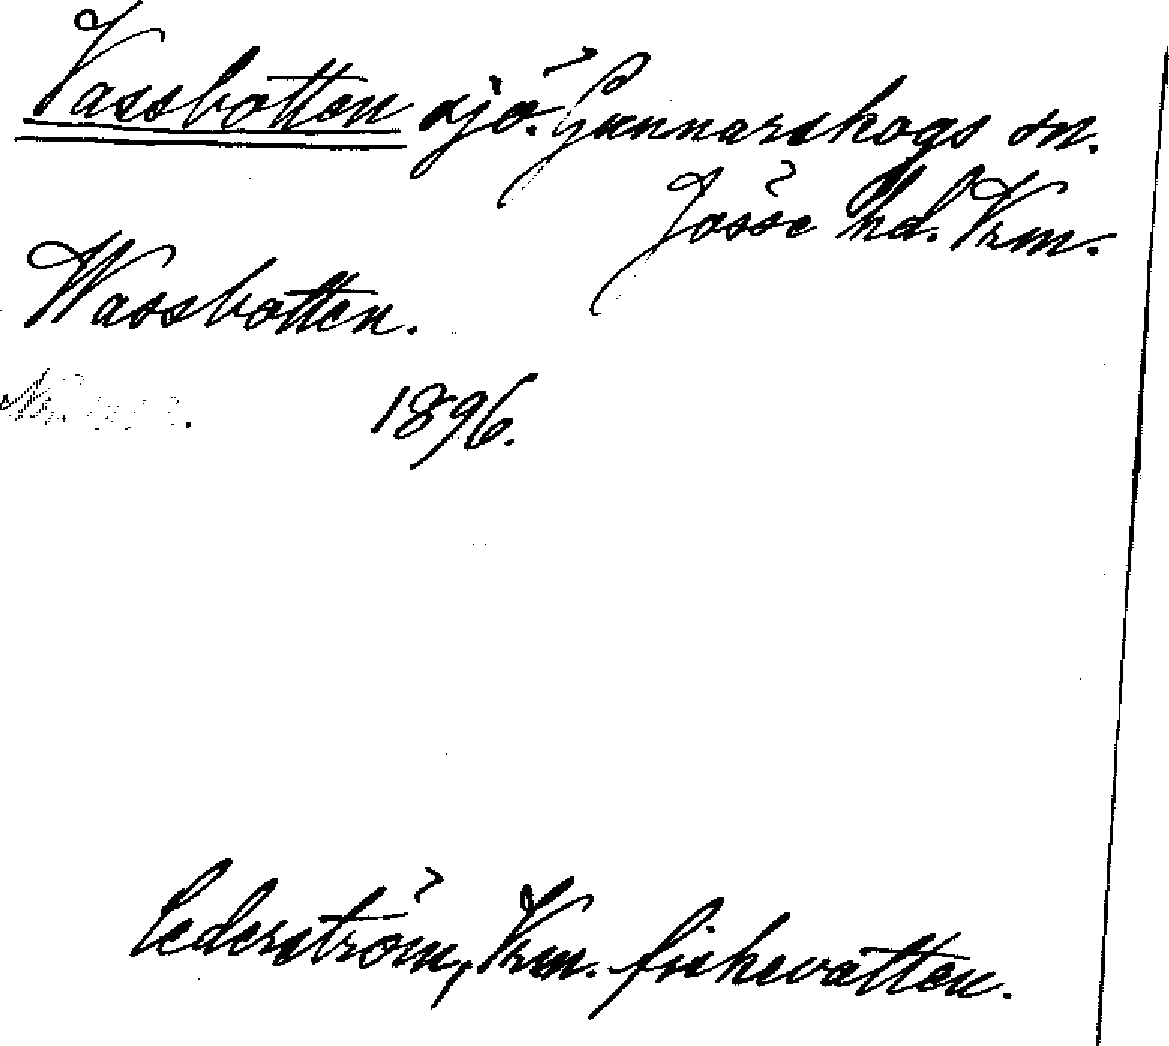 Vassbotten sjö. Gunnarskogs sn.
Jösse hd. Vrm.
Wassbotten.
1896.
Cederström, Vrm. fiskevatten.